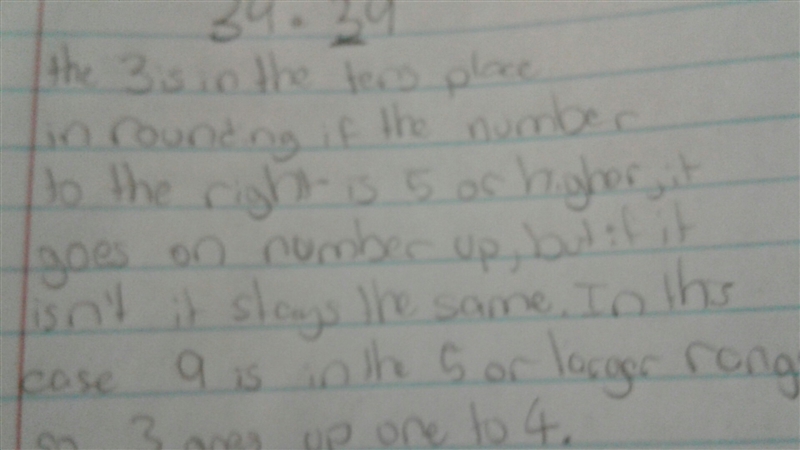 39.39
the 3 is in the tens place
in rounding if the number
to the right is 5 or higher, it
goes on number up, but if it
isn't it stays the same. In this
case 9 is in the 5 or larger rang
so 3 goes up one to 4.